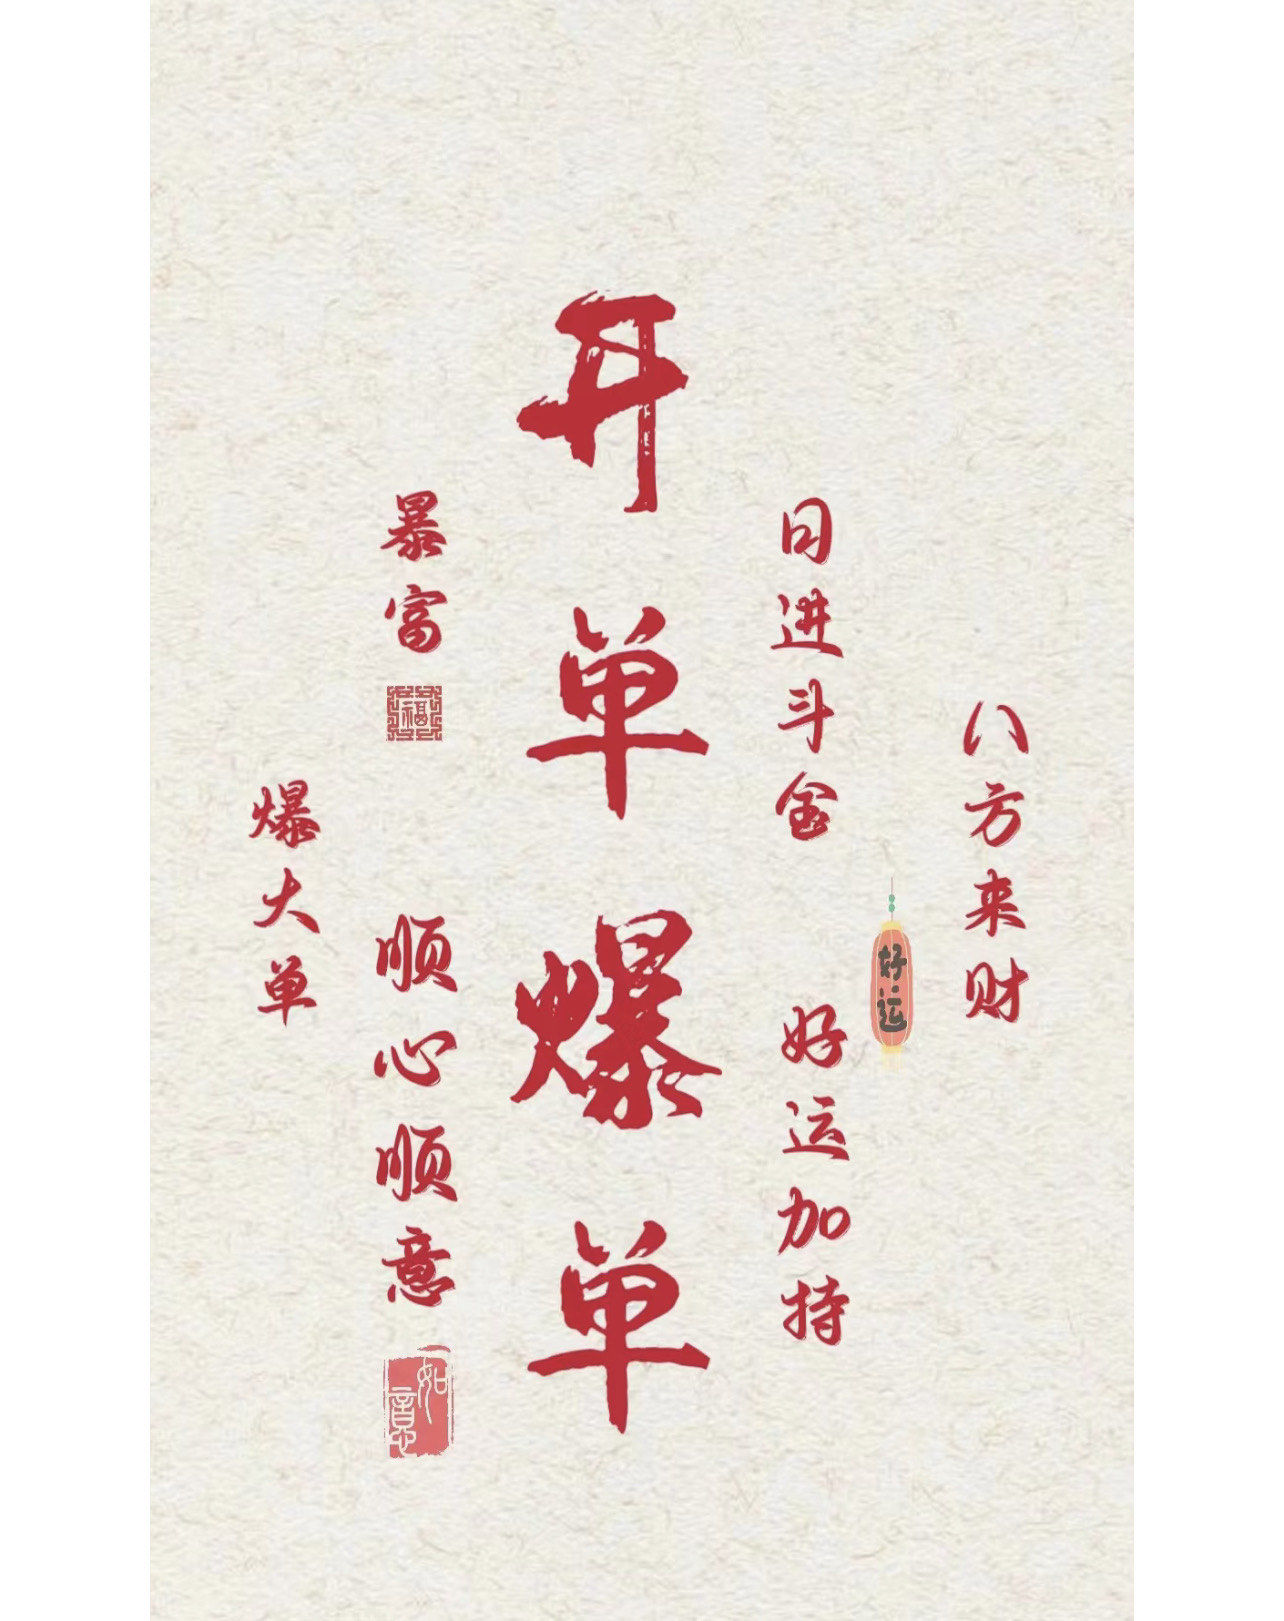 八方来财
好运
日进斗金
好运加持
开单爆单
暴富
福
顺心顺意
如意
爆大单